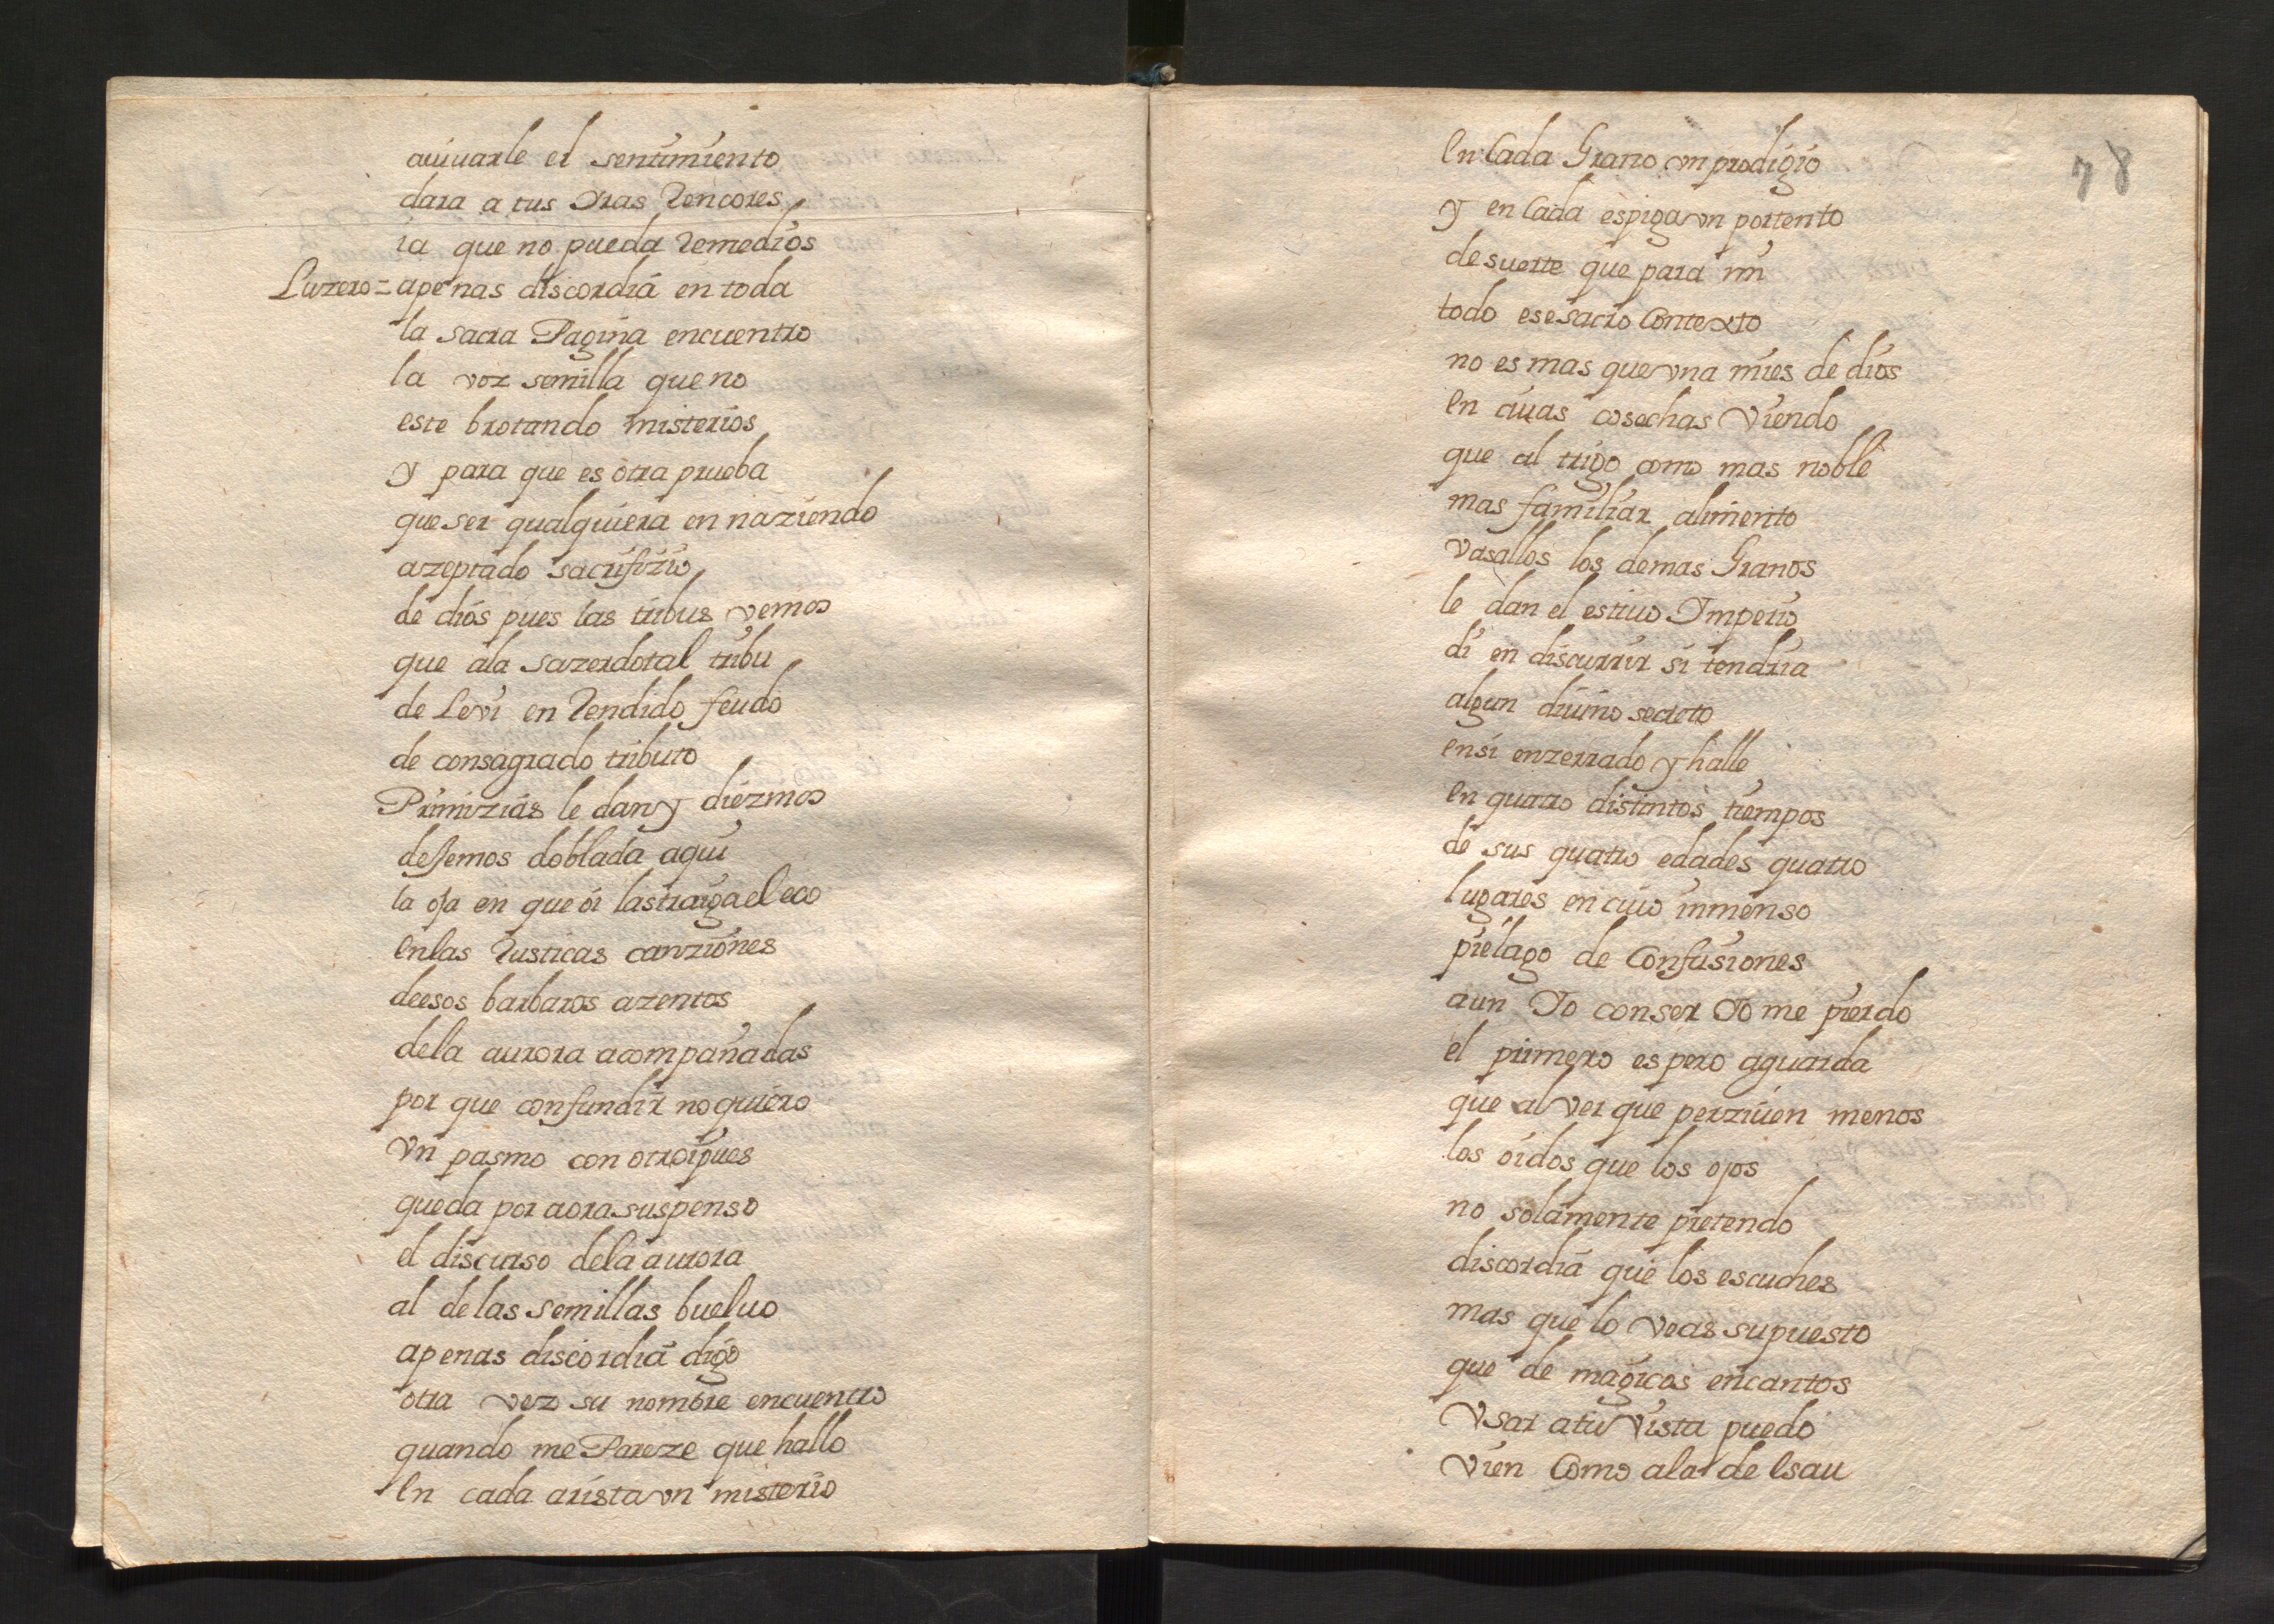 auiuarle el sentimiento
dara a tus Yras Rencores
ia que no pueda Remedios
Luzero = apenas discordia en toda
la sacra Pagina encuentro
la voz semilla que no
este brotando misterios
y para que es otra prueba
que ser qualquiera en naziendo
azeptado sacrifizio
de dios pues las tribus vemos
que ala sazerdotal tribu
de Levi en Rendido feudo
de consagrado tributo
Primizias le dan y diezmos
dejemos doblada aqui
la oja en que oi lastraiga el eco
en las Rusticas canziones
de esos barbaros azentos
dela aurora acompañadas
por que confundir no quiero
vn pasmo con otro i pues
queda por aora suspenso
el discurso dela aurora
al delas semillas bueluo
apenas discordia digo
otra vez su nombre encuentro
quando me Pareze que hallo
en cada arista vn misterio
78
en cada Grano vn prodigio
y en cada espiga vn portento
de suerte que para mi
todo ese sacro Contexto
no es mas que vna mies de dios
en cuias cosechas viendo
que al trigo como mas noble
mas familiar alimento
vasallos los demas Granos
le dan el estiuo Imperio
di en discurrir si tendria
algun diuino secreto
en si enzerrado y halle
en quatro distintos tiempos
de sus quatro edades quatro
lugares en cuio inmenso
pielago de Confusiones
aun Yo con ser Yo me pierdo
el primero es pero aguarda
que al ver que perziuen menos
los oidos que los ojos
no solamente pretendo
discordia que los escuches
mas que lo veas supuesto
que de magicos encantos
vsar atu vista puedo
vien Como ala de esau